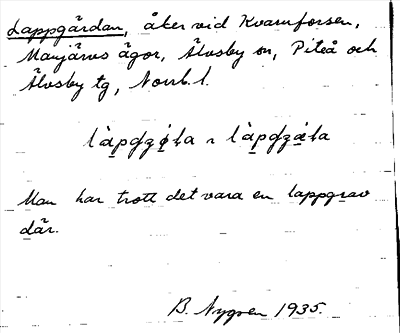 Lappgårdan, åker vid Kvarnforsen,
Manjärvs ägor, Älvsby sn, Piteå och
Älvsby tg, Norrb. l.
Man har trott det vara en lappgrav
där.
B. Nygren 1935.